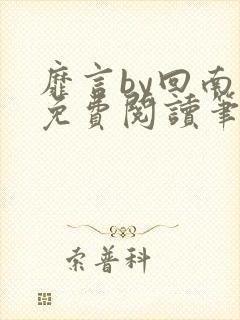 靡言by回南
免費閱讀筆
索普科